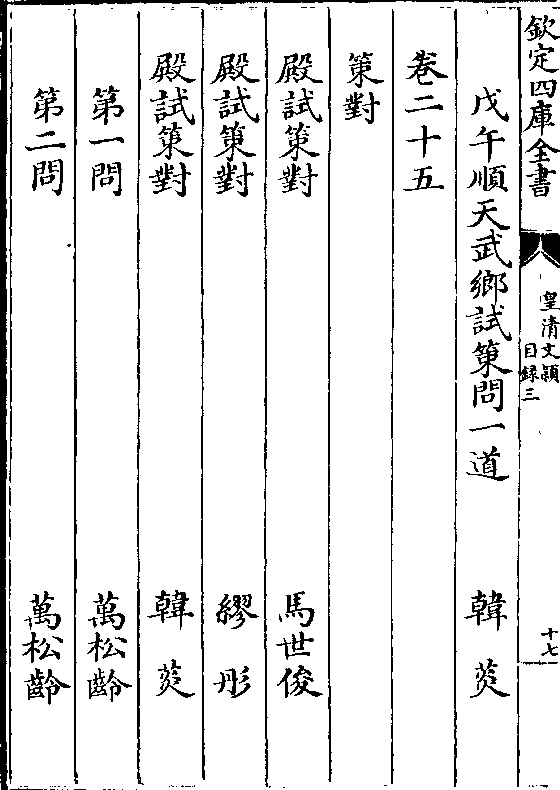 欽定四庫全書
皇清文穎
目録三
十七
戊午順天武鄉試策問一道 韓菼
卷二十五
策對
殿試策對 馬世俊
殿試策對 繆彤
殿試策對 韓菼
第一問 萬松齡
第二問 萬松齡